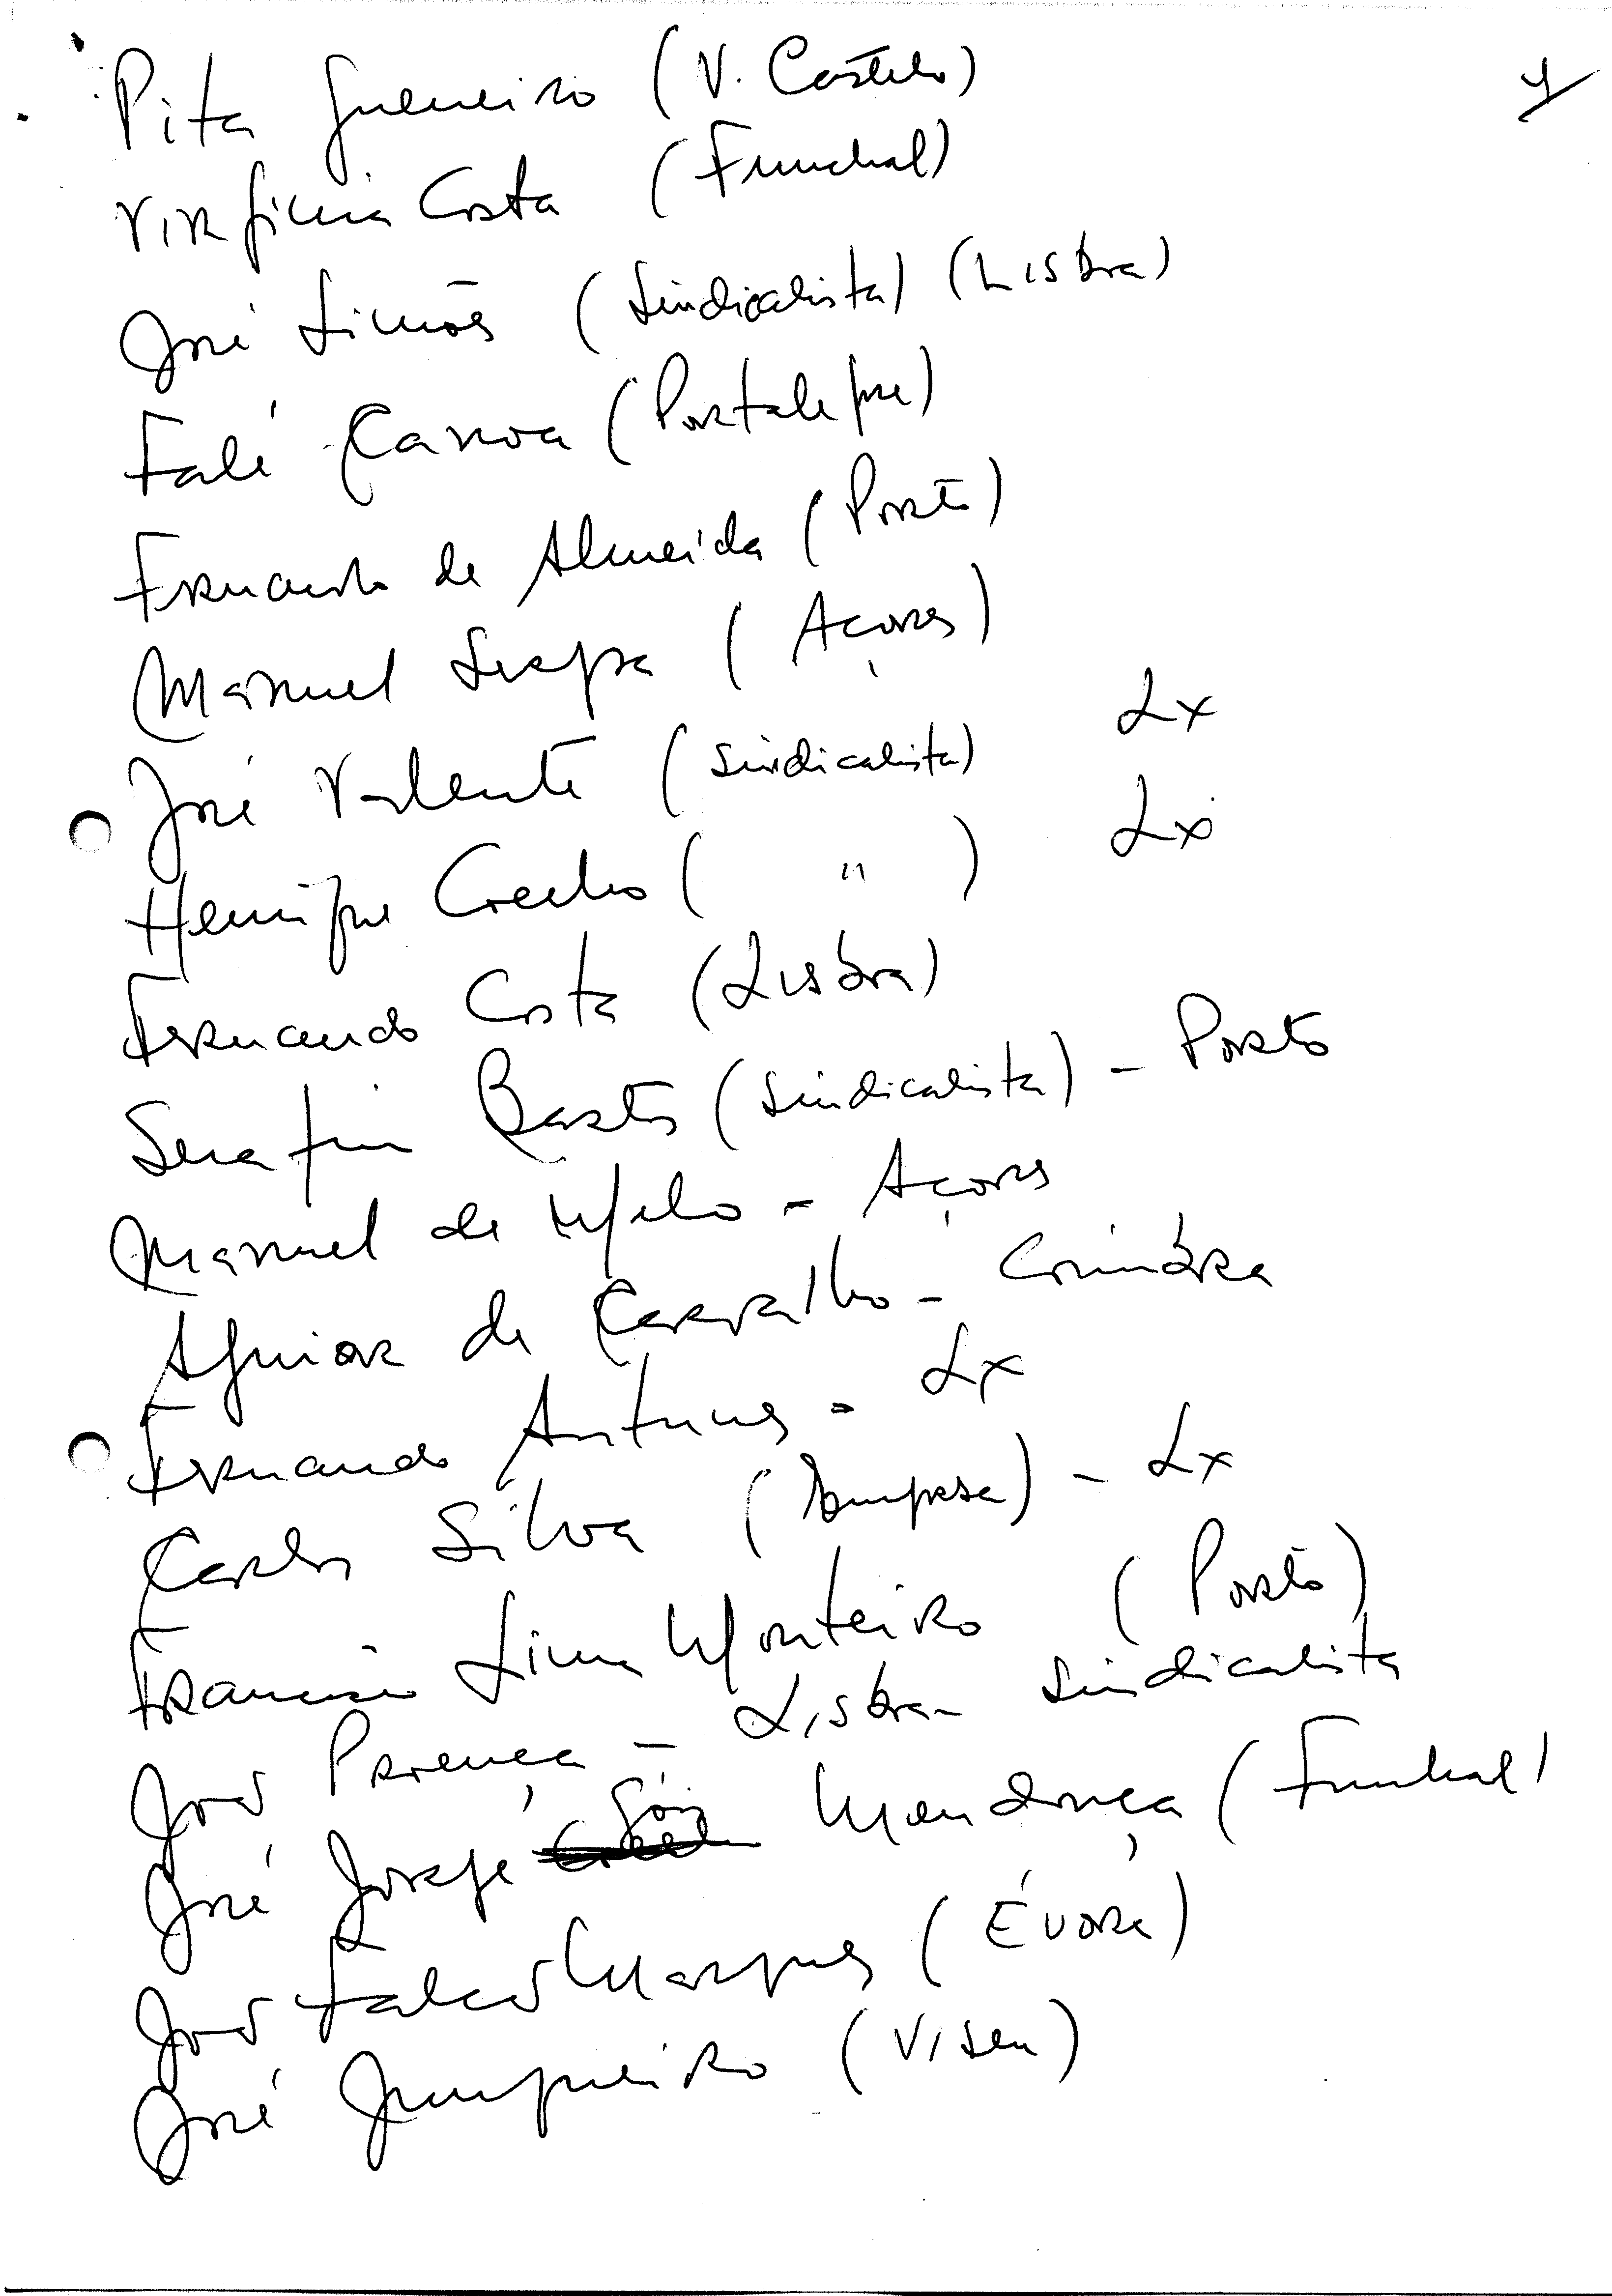 1
Pita Guerreiro (V. Castelo)
Virgínia Costa (Funchal)
José Simões (Sindicalista) (Lisboa)
Falé Canoa (Portalegre)
Fernando de Almeida (Porto)
Manuel Serpa (Açores)
José Valente (sindicalista) Lx
Henrique Coelho ( " ) Lx
Fernando Costa (Lisboa)
Serafim Bastos (Sindicalista) - Porto
Manuel de Melo - Açores
Aguiar de Carvalho - Coimbra
Fernando Antunes - Lx
Carlos Silva (Empresa) - Lx
Francisco Lima Monteiro (Porto)
João Proença - Lisboa - Sindicalista
José Jorge Góis Mendonça (Funchal)
João Falcó Marques (Évora)
José Junqueiro (Viseu)